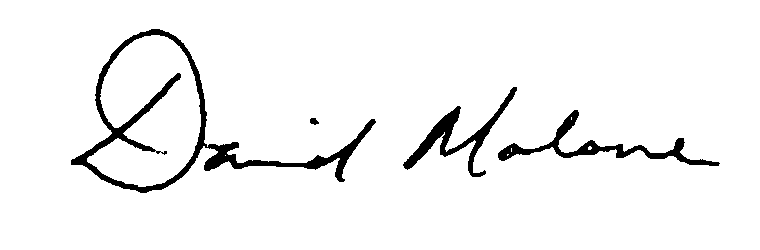 David Malone